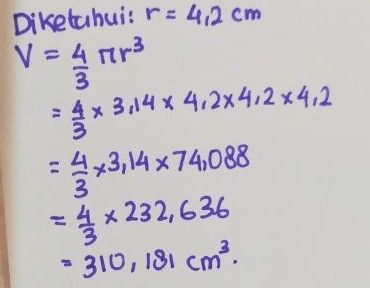 Diketahui: r = 4,2 cm
V = 4/3 πr³
= 4/3 × 3,14 × 4,2×4,2×4,2
= 4/3 ×3,14×74,088
= 4/3 × 232,636
= 310,181 cm³.